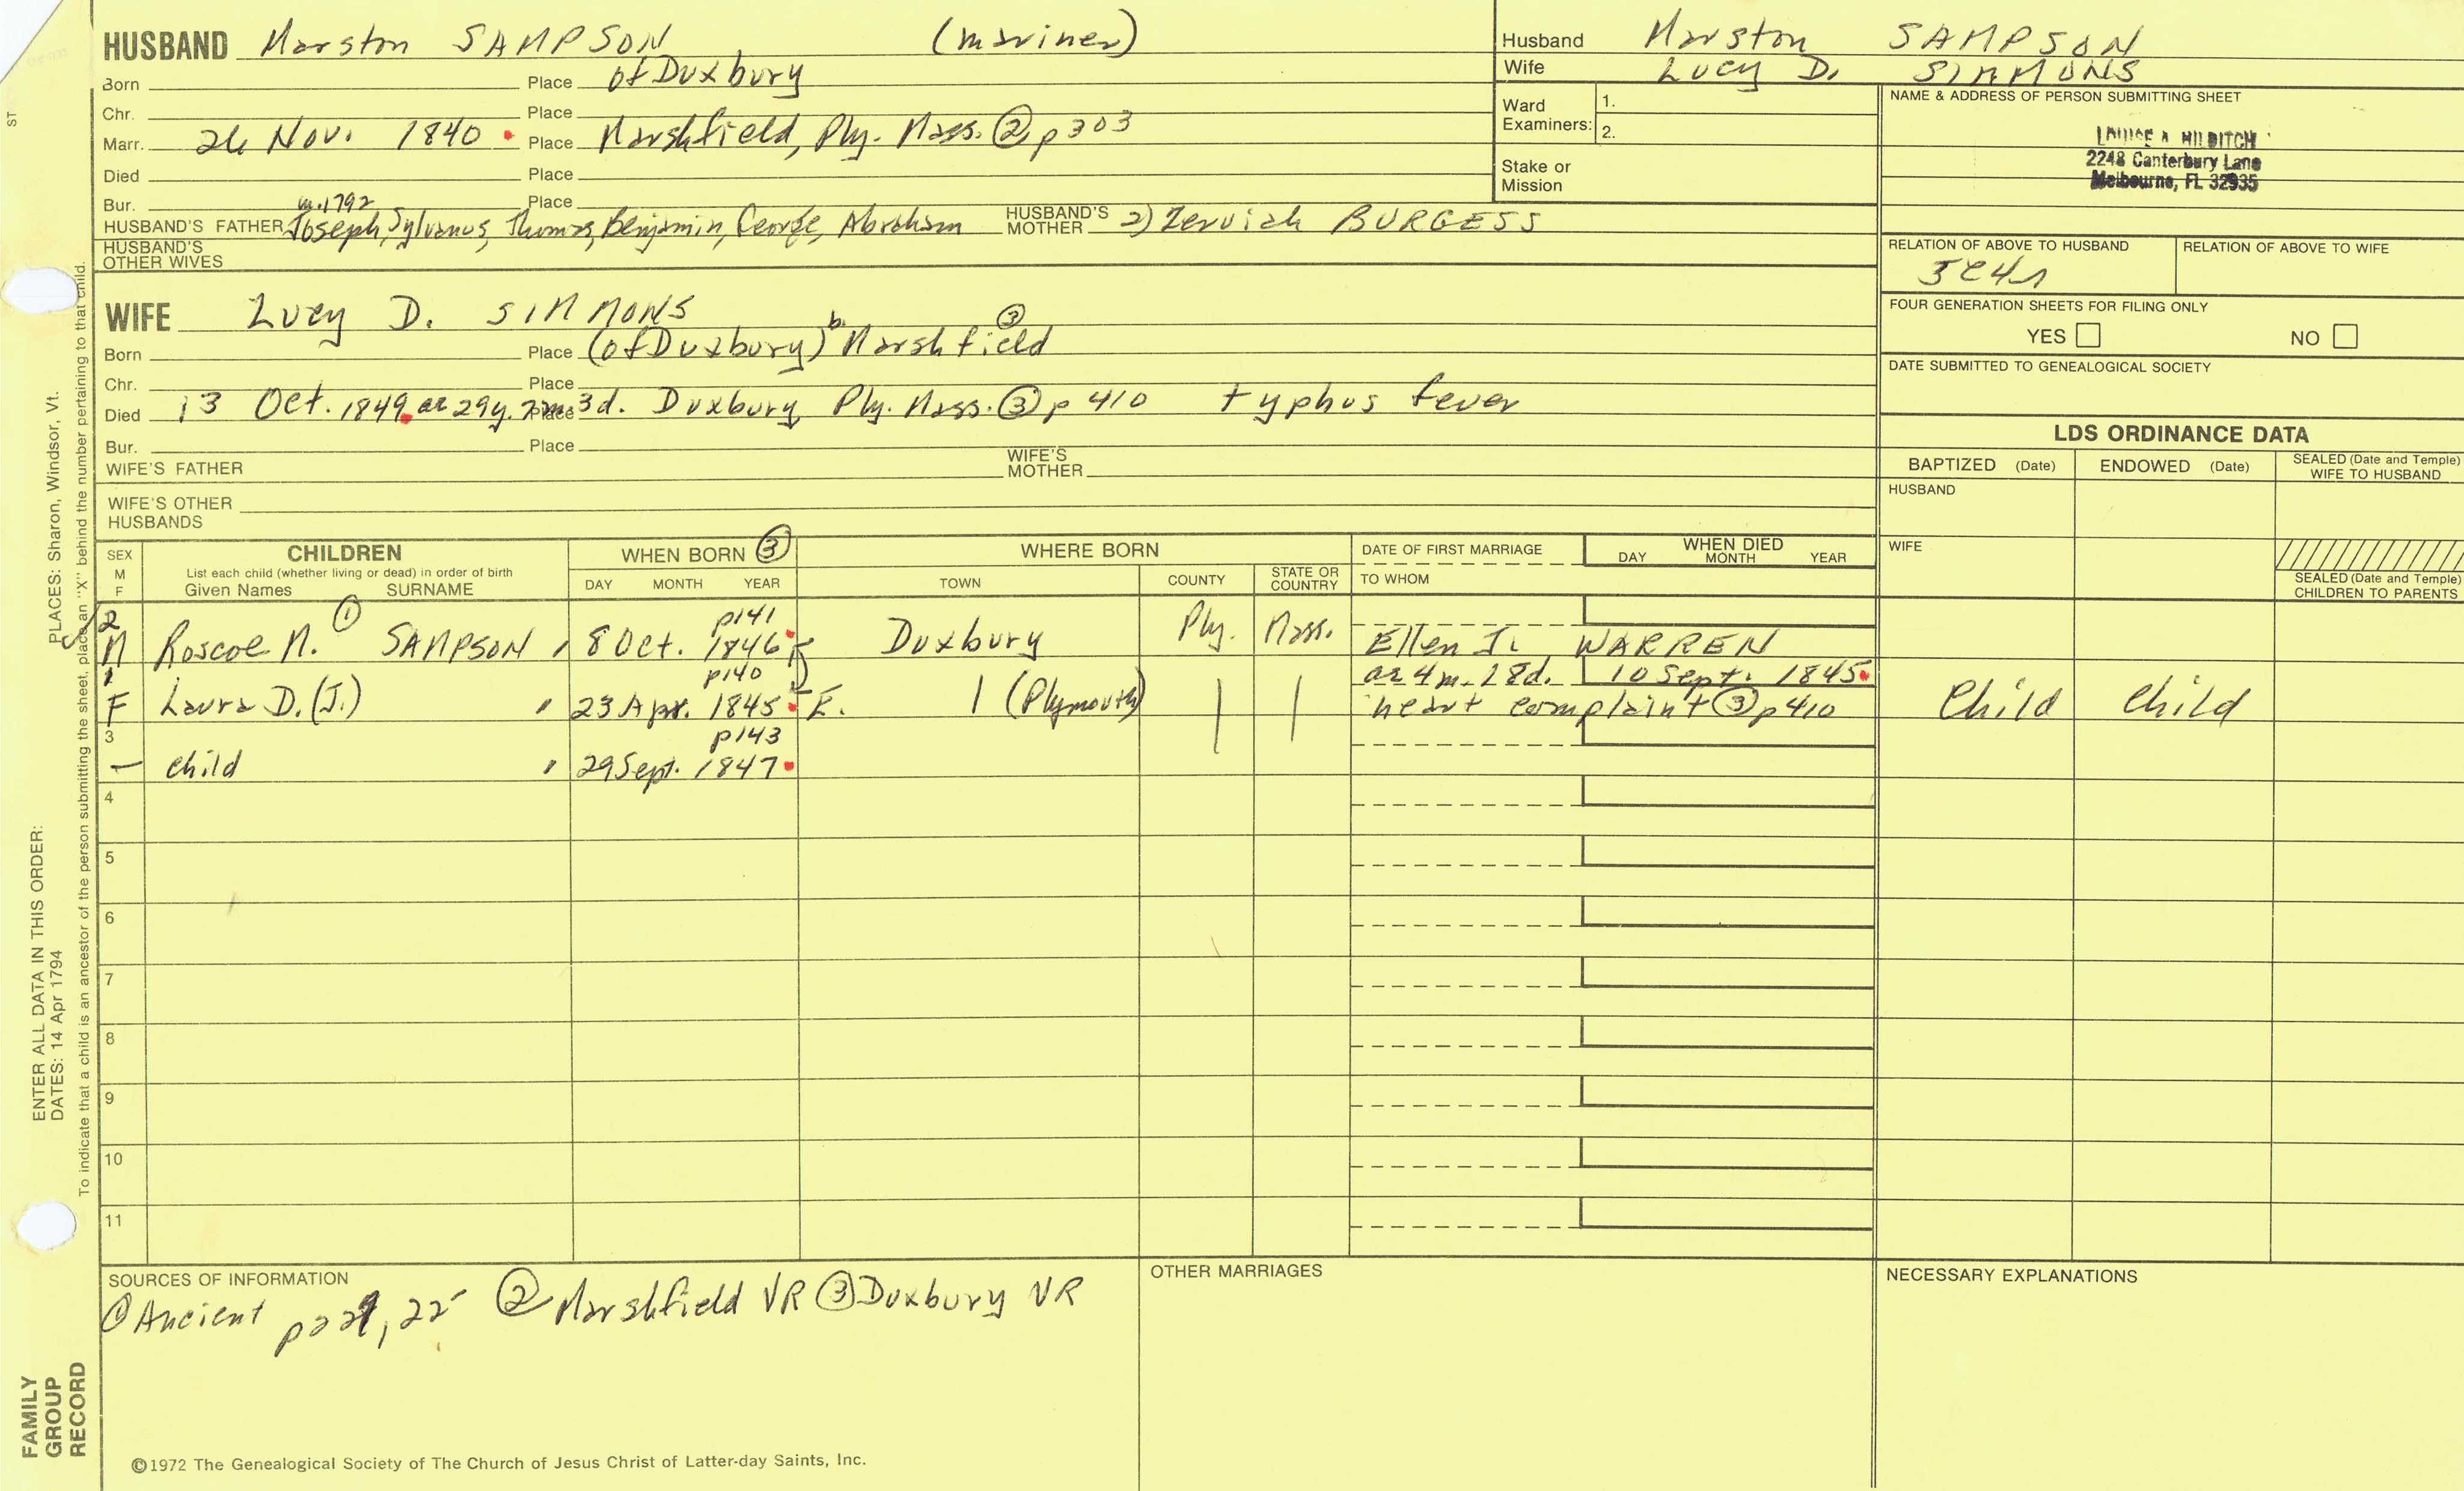 HUSBAND Marston SAMPSON (mariner)
Born Place of Duxbury
Chr. Place
Marr. 26 Nov. 1840 Place Marshfield, Ply. Mass. ② p303
Died Place
Bur. Place
m. 1792
HUSBAND'S FATHER Joseph, Sylvanus, Thomas, Benjamin, George, Abraham HUSBAND'S MOTHER 2) Zerviah BURGESS
HUSBAND'S OTHER WIVES
Husband Marston SAMPSON
Wife Lucy D. SIMMONS
Ward Examiners: 1.
2.
Stake or Mission
NAME & ADDRESS OF PERSON SUBMITTING SHEET
LOUISE A. HILDITCH
2248 Canterbury Lane
Melbourne, FL 32935
RELATION OF ABOVE TO HUSBAND RELATION OF ABOVE TO WIFE
FOUR GENERATION SHEETS FOR FILING ONLY
YES NO
DATE SUBMITTED TO GENEALOGICAL SOCIETY
WIFE Lucy D. SIMMONS
Born Place (of Duxbury) b. Marshfield ③
Chr. Place
Died 13 Oct. 1849 ae 29y. 7m 3d. Place Duxbury, Ply. Mass. ③ p 410 typhus fever
Bur. Place
WIFE'S FATHER WIFE'S MOTHER
WIFE'S OTHER HUSBANDS
LDS ORDINANCE DATA
BAPTIZED (Date) ENDOWED (Date) SEALED (Date and Temple) WIFE TO HUSBAND
HUSBAND
WIFE
SEALED (Date and Temple) CHILDREN TO PARENTS
SEX M F CHILDREN
List each child (whether living or dead) in order of birth
Given Names SURNAME
WHEN BORN ③
DAY MONTH YEAR
WHERE BORN
TOWN COUNTY STATE OR COUNTRY
DATE OF FIRST MARRIAGE
TO WHOM
WHEN DIED
DAY MONTH YEAR
2 M Roscoe M. ① SAMPSON 8 Oct. 1846 p141 Duxbury Ply. Mass. Ellen J. WARREN
1 F Laura D. (J.) " 23 Apr. 1845 p140 E. (Plymouth) ae 4m. 18d. 10 Sept. 1845
heart complaint ③ p410 Child Child
3 — child " 29 Sept. 1847 p143
4
5
6
7
8
9
10
11
SOURCES OF INFORMATION
① Ancient ② Marshfield VR ③ Duxbury VR
OTHER MARRIAGES
NECESSARY EXPLANATIONS
©1972 The Genealogical Society of The Church of Jesus Christ of Latter-day Saints, Inc.
FAMILY GROUP RECORD
ENTER ALL DATA IN THIS ORDER:
DATES: 14 Apr 1794
PLACES: Sharon, Windsor, Vt.
To indicate that a child is an ancestor of the person submitting the sheet, place an "X" behind the number pertaining to that child.
ST